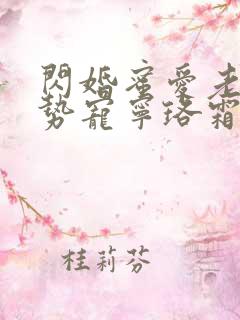 閃婚蜜愛老
勢寵寧珞霜
桂莉芬